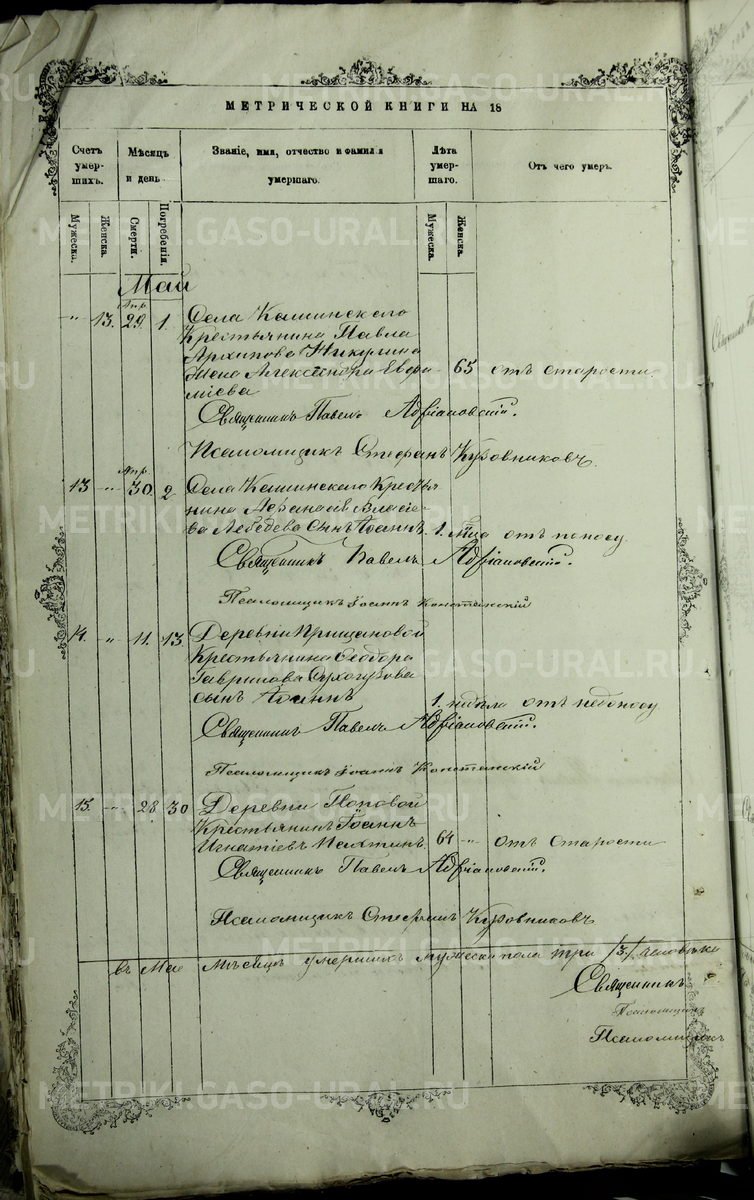 МЕТРИЧЕСКОЙ КНИГИ НА 18
Счетъ умершихъ.
Мѣсяцъ и день
Званіе, имя, отчество и фамилія умершаго.
Лѣта умершаго.
Отъ чего умеръ.
Мужеска.
Женска.
Смерти.
Погребенія.
Мужеска.
Женска.
Май
Апр.
" 13. 29. 1. Села Кашинскаго
Крестьянина Павла
Архипова Никулина
жена Александра Евфи- 65 отъ старости.
міева
Священникъ Павелъ Адріановскій.
Псаломщикъ Стефанъ Куровниковъ.
Апр.
13 " 30. 2 Села Кашинскаго Кресть
нина Аѳанасія Власіе-
ва Лебедева сынъ Іоаннъ 1. м‑ца отъ поносу
Священникъ Павелъ Адріановскій.
Псаломщикъ Іоаннъ Констанскій
14. " 11. 13 Деревни
Крестьянина Ѳеодора
Гаврилова
сынъ Іоаннъ 1. недѣля отъ
Священникъ Павелъ Адріановскій.
Псаломщикъ Іоаннъ Констанскій
15. " 28 30 Деревни Поповой
Крестьянинъ Іоаннъ
Игнатіевъ 64 " отъ старости
Священникъ Павелъ Адріановскій.
Псаломщикъ Стефанъ Куровниковъ
въ Маѣ мѣсяцѣ умершихъ мужеска пола три /3/ человѣка
Священникъ
Псаломщикъ
Псаломщикъ
METRIKI.GASO-URAL.RU